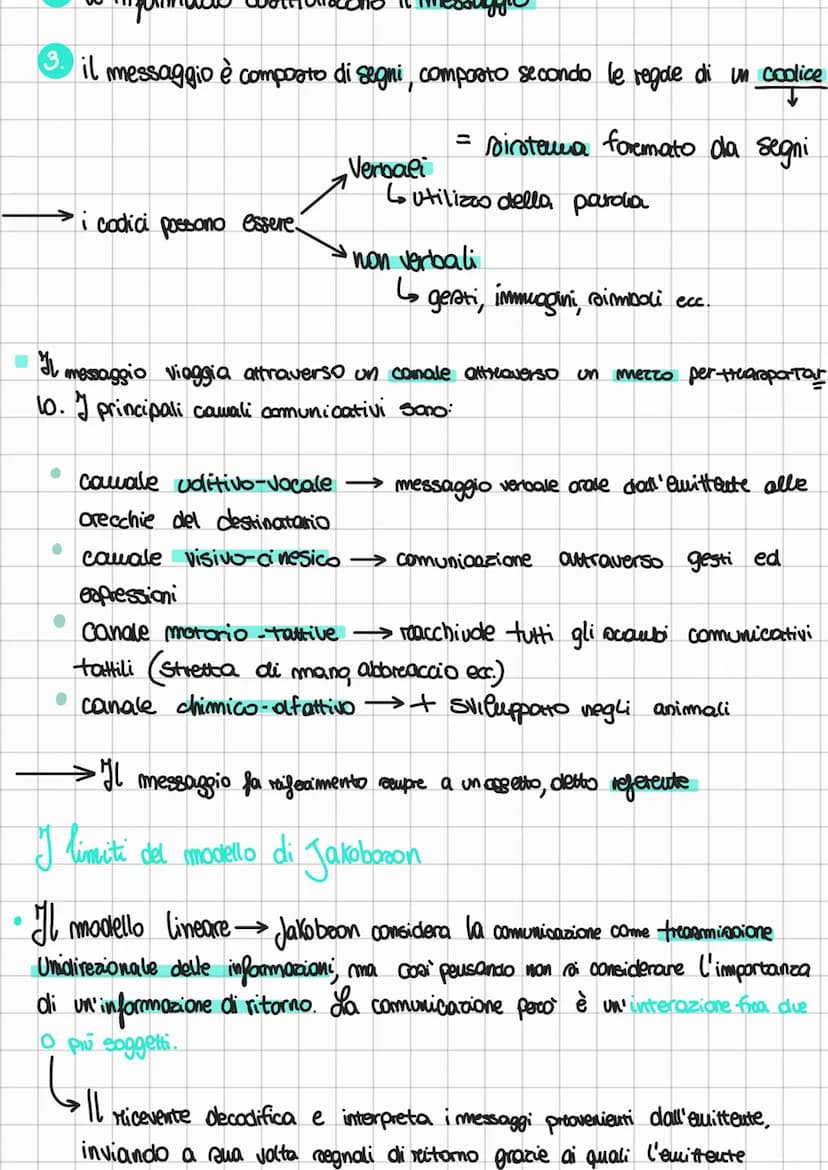 le informazioni costituiscono il messaggio
3. il messaggio è composto di segni, composto secondo le regole di un codice
= sistema formato da segni
Verbali
↳ utilizzo della parola
→ i codici possono essere
non verbali
↳ gesti, immagini, simboli ecc.
Il messaggio viaggia attraverso un canale attraverso un mezzo per trasportar
lo. I principali canali comunicativi sono:
• canale uditivo-vocale → messaggio verbale orale dall'emittente alle
orecchie del destinatario
• canale visivo-cinesico → comunicazione attraverso gesti ed
espressioni
• canale motorio-tattile → racchiude tutti gli scambi comunicativi
tattili (stretta di mano, abbraccio ecc.)
• canale chimico-olfattivo → + sviluppato negli animali
→ Il messaggio fa riferimento sempre a un oggetto, detto referente
I limiti del modello di Jakobson
• Il modello lineare → Jakobson considera la comunicazione come trasmissione
Unidirezionale delle informazioni, ma così pensando non si considerare l'importanza
di un'informazione di ritorno. La comunicazione però è un'interazione fra due
o più soggetti.
↳ Il ricevente decodifica e interpreta i messaggi provenienti dall'emittente,
inviando a sua volta segnali di ritorno grazie ai quali l'emittente